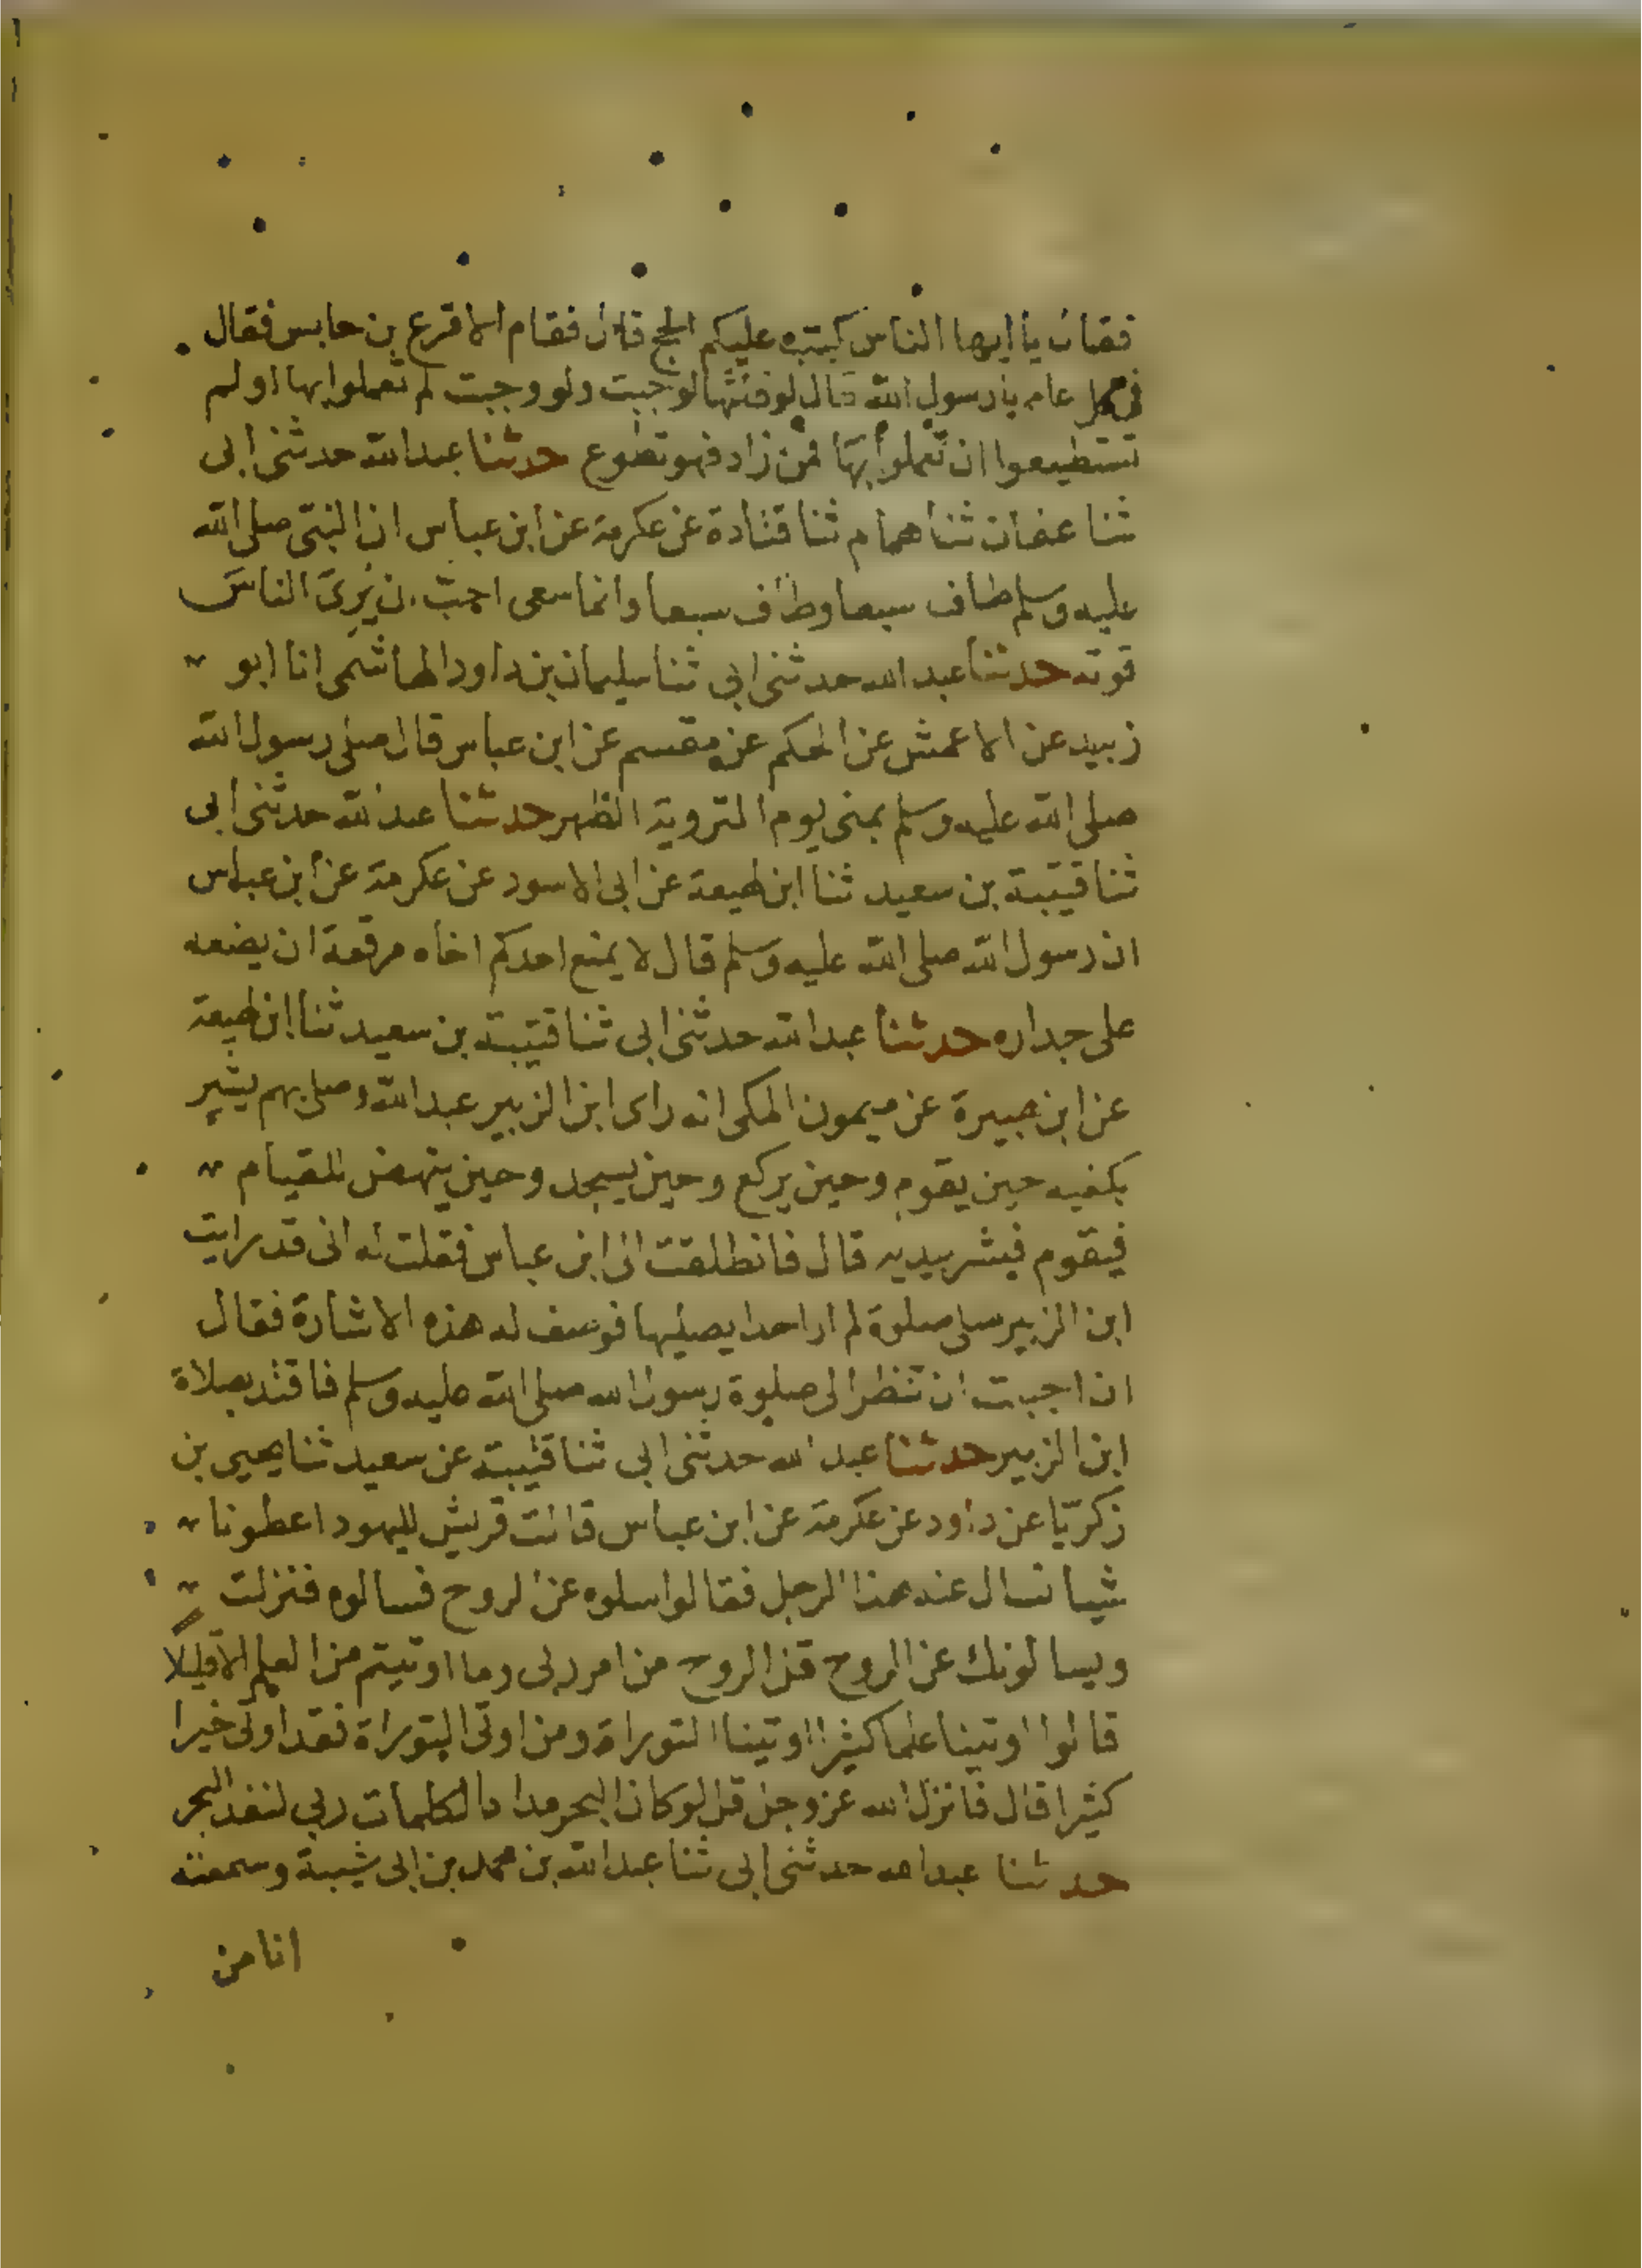 فقال يا ايها الناس كتب عليكم الحج قال فقام الاقرع بن حابس فقال
في كل عام يا رسول الله قال لو قلتها لوجبت ولو وجبت لم تعملوا بها او لم
تستطيعوا ان تعملوا بها فمن زاد فهو تطوع حدثنا عبدالله حدثنى ابى
ثنا عفان ثنا همام ثنا قتادة عن عكرمة عن ابن عباس ان النبى صلى الله
عليه وسلم طاف سبعا وطاف سبعا وانما سعى احب ان يرى الناس
قوته حدثنا عبد الله حدثنى ابى ثنا سليمان بن داود الهاشمى انا ابو
زبيد عن الاعمش عن الحكم عن مقسم عن ابن عباس قال صلى رسول الله
صلى الله عليه وسلم بمنى يوم التروية الظهر حدثنا عبد الله حدثنى ابى
ثنا قتيبة بن سعيد ثنا ابن لهيعة عن ابى الاسود عن عكرمة عن ابن عباس
ان رسول الله صلى الله عليه وسلم قال لا يمنع احدكم اخاه مرفقة ان يضعه
على جداره حدثنا عبد الله حدثنى ابى ثنا قتيبة بن سعيد ثنا ابن لهيعة
عن ابن هبيرة عن ميمون المكى انه راى ابن الزبير عبد الله وصلى بهم يشير
بكفيه حين يقوم وحين يركع وحين يسجد وحين ينهض للقيام
فيقوم فيشر بيديه قال فانطلقت الى ابن عباس فقلت له انى قد رايت
ابن الزبير صلى صلوة لم ار احدا يصليها فوصف له هذه الاشارة فقال
ان احببت ان تنظر الى صلوة رسول الله صلى الله عليه وسلم فاقتد بصلاة
ابن الزبير حدثنا عبد الله حدثنى ابى ثنا قتيبة عن سعيد ثنا يحيى بن
زكريا عن داود عن عكرمة عن ابن عباس قالت قريش لليهود اعطونا
شيا نسال عنه هذا الرجل فقالوا سلوه عن الروح فسالوه فنزلت
ويسالونك عن الروح قل الروح من امر ربى وما اوتيتم من العلم الا قليلا
قالوا اوتينا علما كثيرا اوتينا التوراة ومن اوتى التوراة فقد اوتى خيرا
كثيرا قال فانزل الله عز وجل قل لو كان البحر مدادا لكلمات ربى لنفد البحر
حدثنا عبد الله حدثنى ابى ثنا عبد الله بن محمد بن ابى شيبة وسمعته
انا من